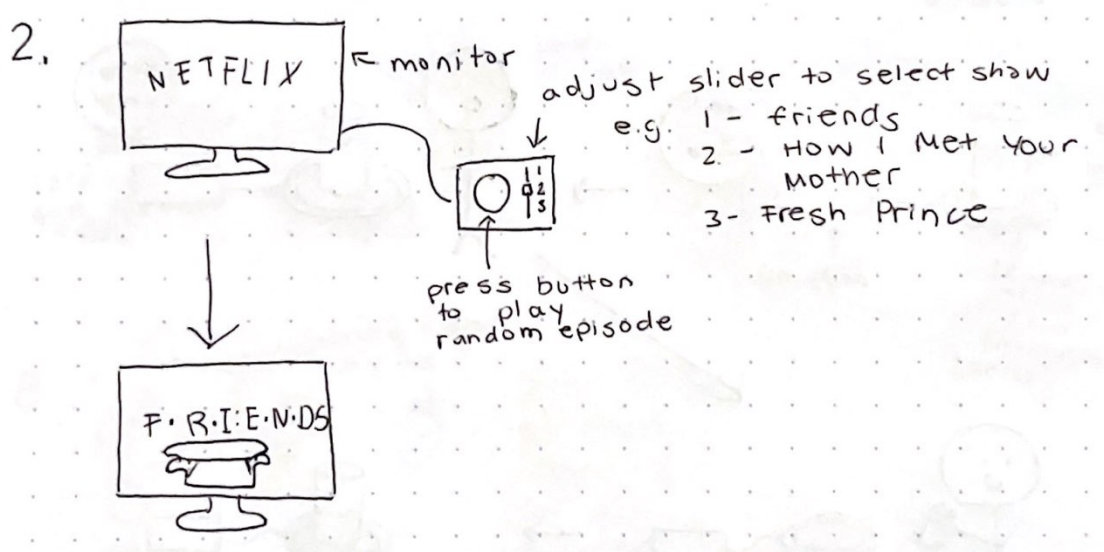 2.
NETFLIX
monitor
adjust slider to select show
e.g. 1 - friends
2 - HOW I Met your
Mother
3 - Fresh Prince
1
2
3
press button
to play
random episode
F.R.I.E.N.DS